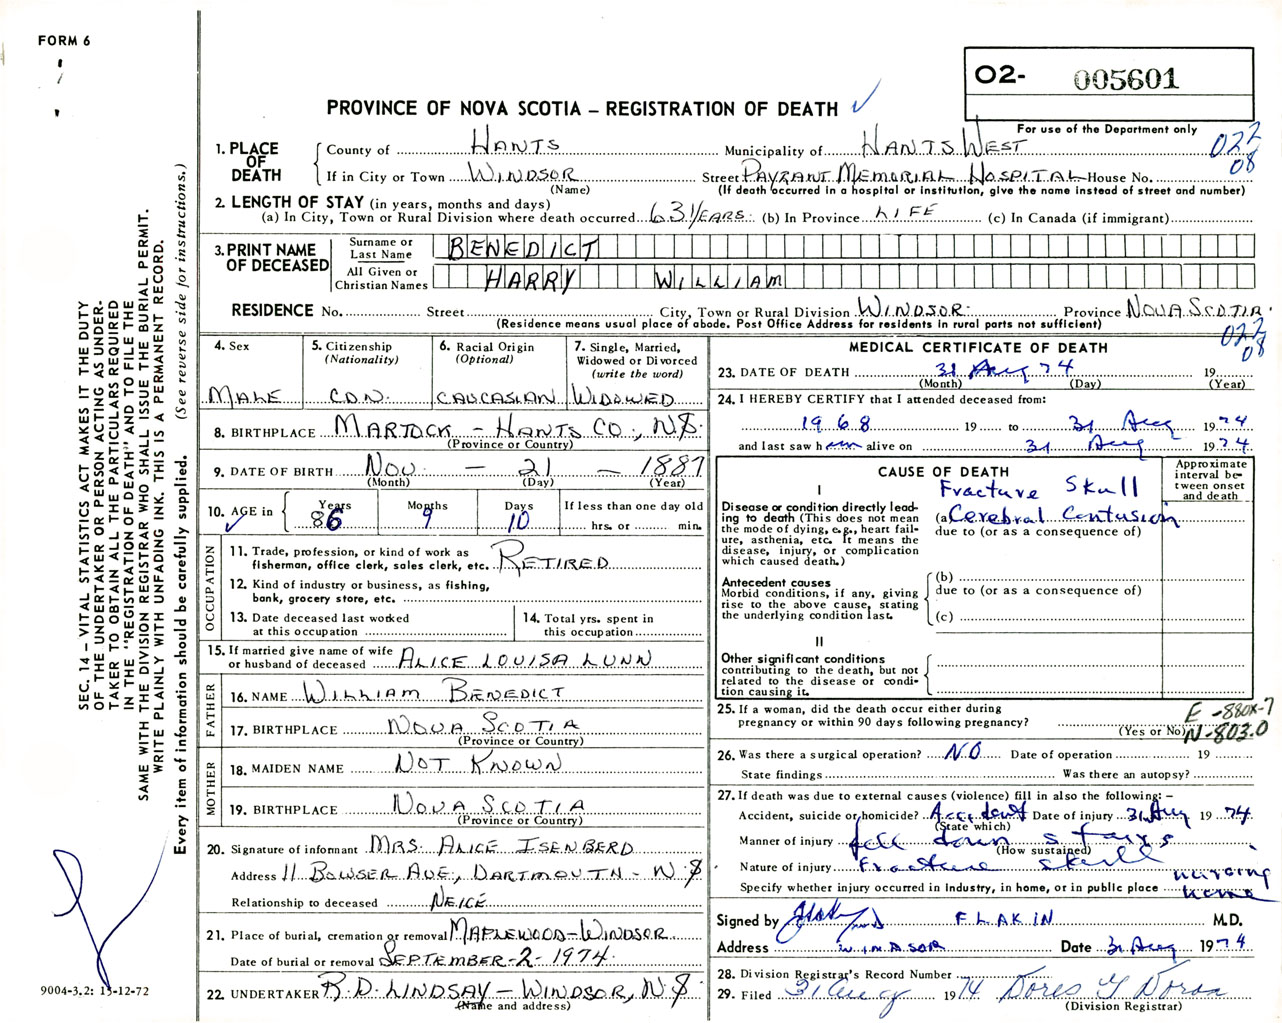 FORM 6
O2- 005601
PROVINCE OF NOVA SCOTIA – REGISTRATION OF DEATH
For use of the Department only
022
08
1. PLACE OF DEATH
County of HANTS Municipality of HANTS WEST
If in City or Town WINDSOR Street PAYZANT MEMORIAL HOSPITAL House No.
(Name) (If death occurred in a hospital or institution, give the name instead of street and number)
2. LENGTH OF STAY (in years, months and days)
(a) In City, Town or Rural Division where death occurred 63 YEARS (b) In Province LIFE (c) In Canada (if immigrant)
3. PRINT NAME OF DECEASED
Surname or Last Name BENEDICT
All Given or Christian Names HARRY WILLIAM
RESIDENCE No. Street City, Town or Rural Division WINDSOR Province NOVA SCOTIA
(Residence means usual place of abode. Post Office Address for residents in rural parts not sufficient)
022
08
4. Sex MALE
5. Citizenship (Nationality) CDN.
6. Racial Origin (Optional) CAUCASIAN
7. Single, Married, Widowed or Divorced (write the word) WIDOWED
8. BIRTHPLACE MARTOCK – HANTS CO., N.S.
(Province or Country)
9. DATE OF BIRTH NOV. – 21 – 1887
(Month) (Day) (Year)
10. AGE in Years 86 Months 9 Days 10 If less than one day old hrs. or min.
OCCUPATION
11. Trade, profession, or kind of work as fisherman, office clerk, sales clerk, etc. RETIRED
12. Kind of industry or business, as fishing, bank, grocery store, etc.
13. Date deceased last worked at this occupation
14. Total yrs. spent in this occupation
15. If married give name of wife or husband of deceased ALICE LOUISA LUNN
FATHER
16. NAME WILLIAM BENEDICT
17. BIRTHPLACE NOVA SCOTIA
(Province or Country)
MOTHER
18. MAIDEN NAME NOT KNOWN
19. BIRTHPLACE NOVA SCOTIA
(Province or Country)
20. Signature of informant MRS. ALICE ISENBERD
Address 11 BOWSER AVE, DARTMOUTH – N.S
Relationship to deceased NEICE
21. Place of burial, cremation or removal MAPLEWOOD – WINDSOR
Date of burial or removal SEPTEMBER – 2 – 1974
22. UNDERTAKER R.D. LINDSAY – WINDSOR, N.S
(Name and address)
MEDICAL CERTIFICATE OF DEATH
23. DATE OF DEATH 31 Aug 74 19
(Month) (Day) (Year)
24. I HEREBY CERTIFY that I attended deceased from:
1968 19 to 31 Aug 1974
and last saw him alive on 31 Aug 1974
CAUSE OF DEATH
Approximate interval between onset and death
I
Disease or condition directly leading to death (This does not mean the mode of dying, e.g., heart failure, asthenia, etc. It means the disease, injury, or complication which caused death.)
Fracture Skull
(a) Cerebral Contusion
due to (or as a consequence of)
Antecedent causes
Morbid conditions, if any, giving rise to the above cause, stating the underlying condition last.
(b)
due to (or as a consequence of)
(c)
II
Other significant conditions contributing to the death, but not related to the disease or condition causing it.
25. If a woman, did the death occur either during pregnancy or within 90 days following pregnancy?
(Yes or No)
E -880X-7
N-803.0
26. Was there a surgical operation? NO Date of operation 19
State findings Was there an autopsy?
27. If death was due to external causes (violence) fill in also the following: –
Accident, suicide or homicide? Accident Date of injury 31 Aug 1974.
(State which)
Manner of injury fell down stairs
(How sustained)
Nature of injury Fracture skull
Specify whether injury occurred in Industry, in home, or in public place nursing home
Signed by F LAKIN M.D.
Address WINDSOR Date 31 Aug 1974
28. Division Registrar's Record Number
29. Filed 31 Aug 1974 Doris Y Doran
(Division Registrar)
SEC. 14 – VITAL STATISTICS ACT MAKES IT THE DUTY
OF THE UNDERTAKER OR PERSON ACTING AS UNDER-
TAKER TO OBTAIN ALL THE PARTICULARS REQUIRED
IN THE "REGISTRATION OF DEATH" AND TO FILE THE
SAME WITH THE DIVISION REGISTRAR WHO SHALL ISSUE THE BURIAL PERMIT.
WRITE PLAINLY WITH UNFADING INK. THIS IS A PERMANENT RECORD.
Every item of information should be carefully supplied. (See reverse side for instructions.)
9004-3.2: 15-12-72